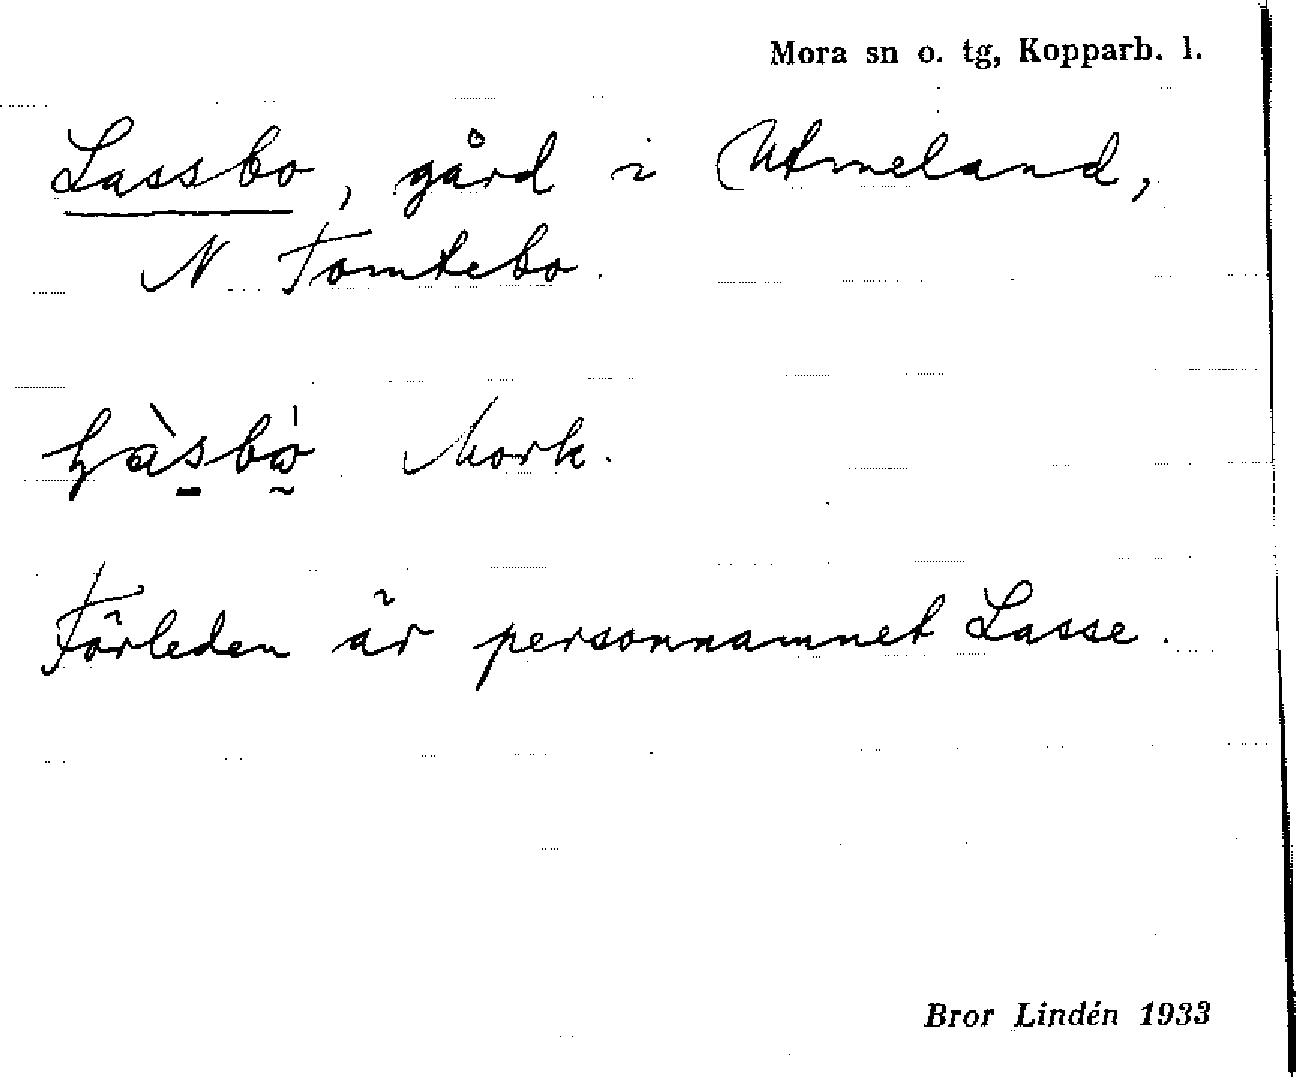 Mora sn o. tg, Kopparb. l.
Lassbo, gård i Utmeland,
N Tomtebo.
Mork.
Förleden är personnamnet Lasse.
Bror Lindén 1933